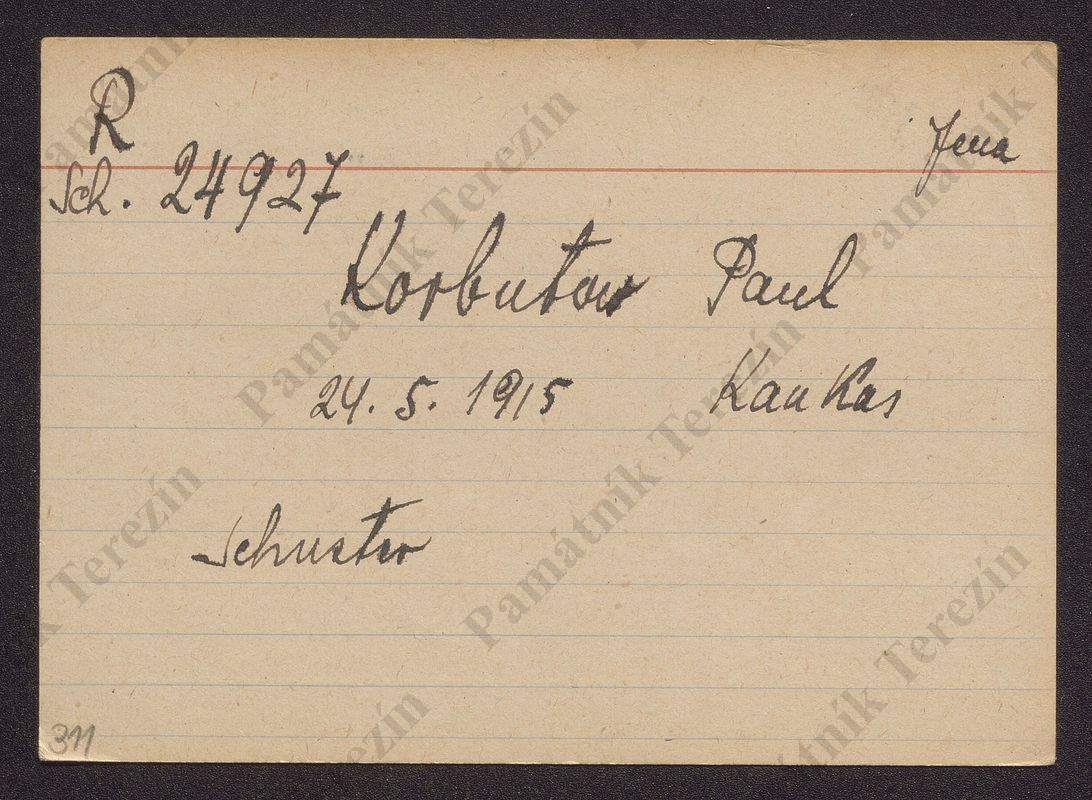 R
Jena
Sch. 24927
Korbutow Paul
24. 5. 1915 Kaukas
Schuster
311
Památník Terezín
Památník Terezín
Památník Terezín
Památník Terezín
Památník Terezín